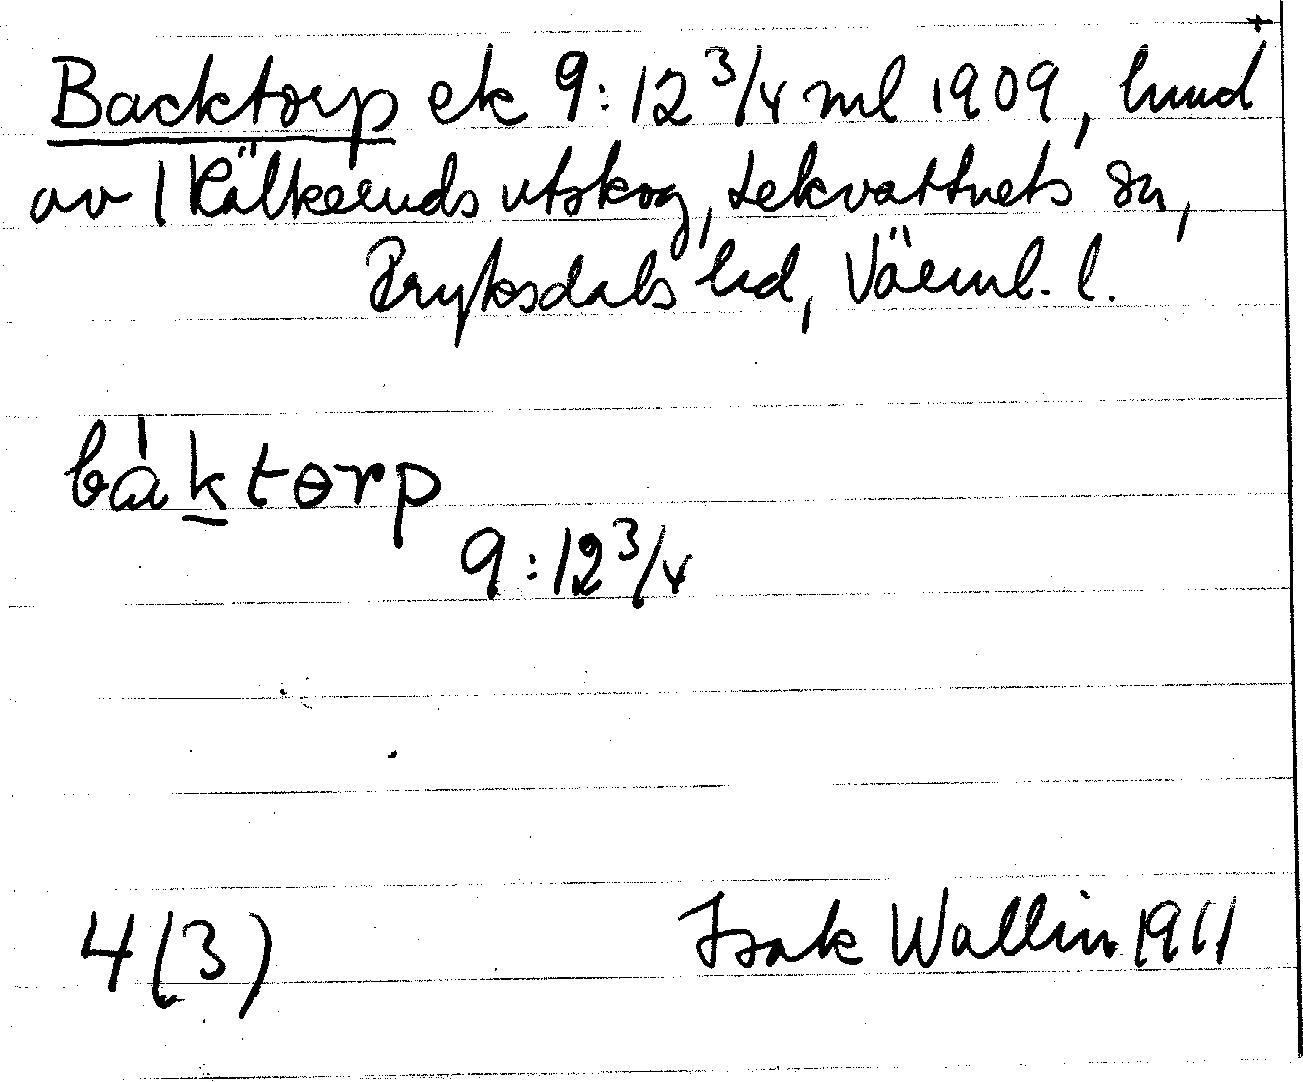 Backtorp ek 9:12 3/4 ml 1909, hmd
av 1 Kälkeruds utskog, Lekvattnets sn,
Fryksdals hd, Värml. l.
bàktørp
9:12 3/4
4(3)
Isak Wallin 1911